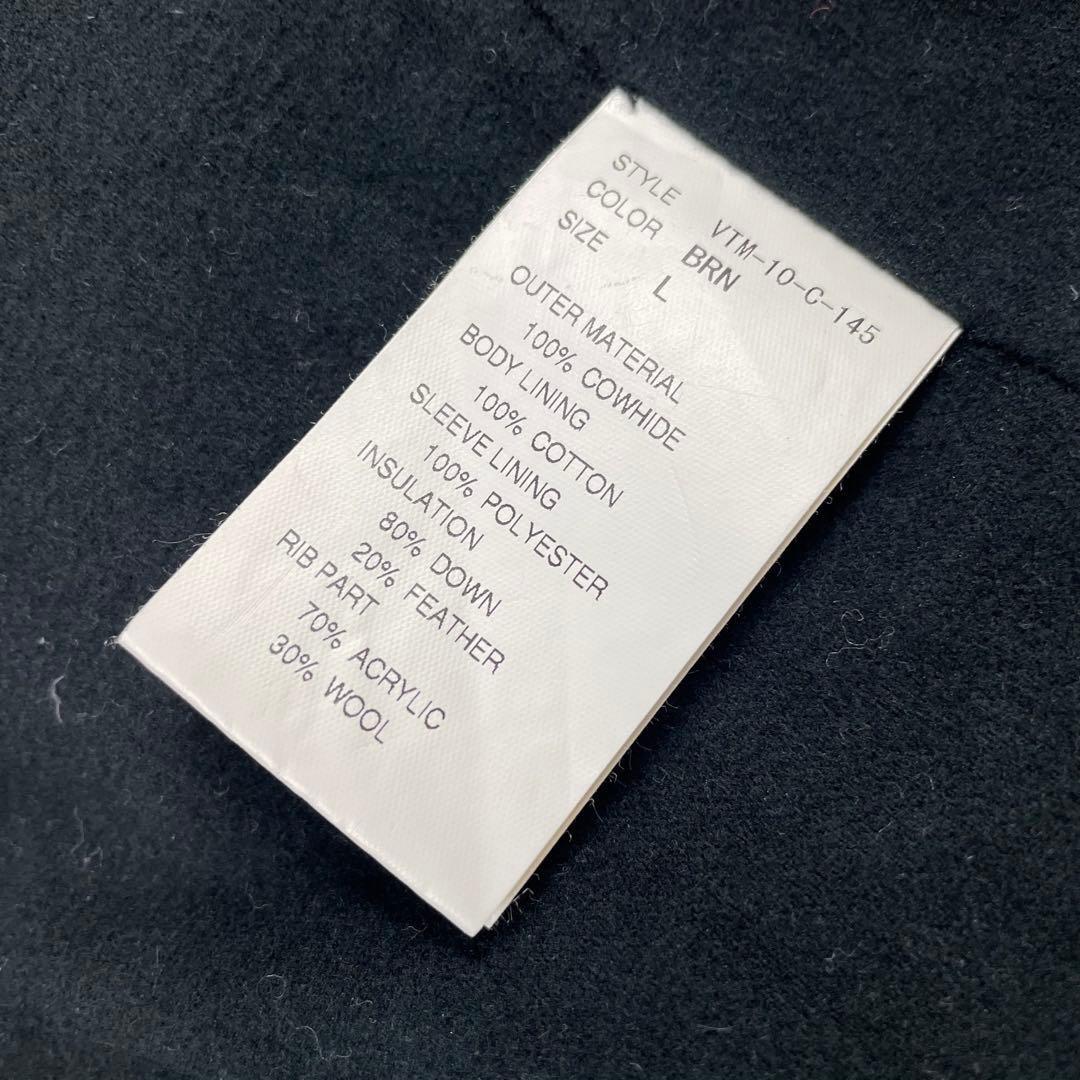 STYLE VTM-10-C-145
COLOR BRN
SIZE L
OUTER MATERIAL
100% COWHIDE
BODY LINING
100% COTTON
SLEEVE LINING
100% POLYESTER
INSULATION
80% DOWN
20% FEATHER
RIB PART
70% ACRYLIC
30% WOOL